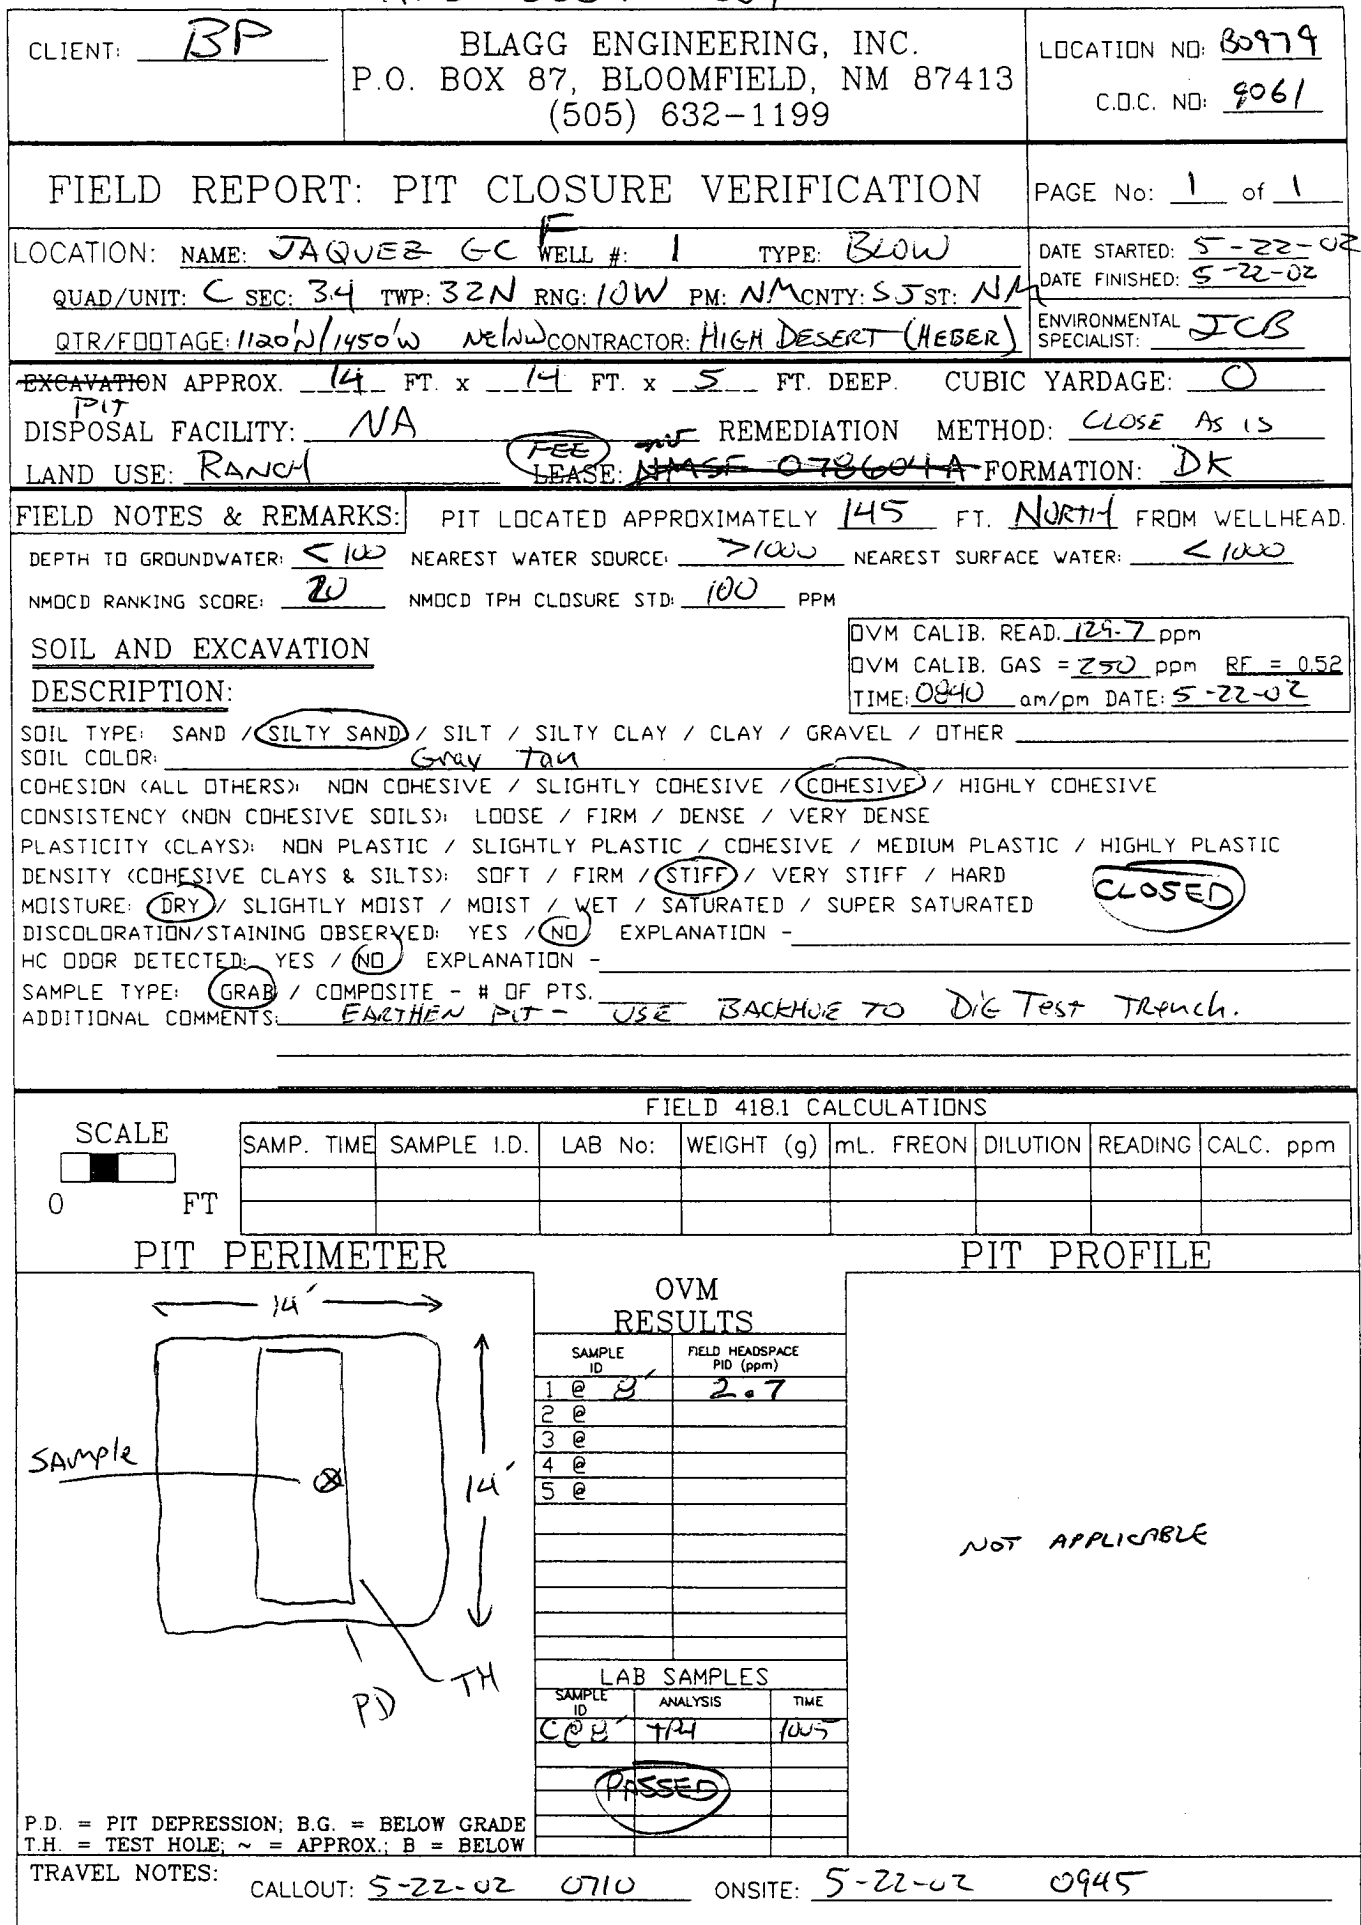 CLIENT: BP
BLAGG ENGINEERING, INC.
P.O. BOX 87, BLOOMFIELD, NM 87413
(505) 632-1199
LOCATION NO: B0979
C.O.C. NO: 9061
FIELD REPORT: PIT CLOSURE VERIFICATION
PAGE No: 1 of 1
LOCATION: NAME: JAQUEZ GC F WELL #: 1 TYPE: BLOW
QUAD/UNIT: C SEC: 34 TWP: 32N RNG: 10W PM: NM CNTY: SJ ST: NM
QTR/FOOTAGE: 1120'N/1450'W NE/NW CONTRACTOR: HIGH DESERT (HEBER)
DATE STARTED: 5-22-02
DATE FINISHED: 5-22-02
ENVIRONMENTAL SPECIALIST: JCB
EXCAVATION APPROX. 14 FT. x 14 FT. x 5 FT. DEEP. CUBIC YARDAGE: 0
PIT
DISPOSAL FACILITY: NA REMEDIATION METHOD: CLOSE AS IS
LAND USE: RANCH FEE LEASE: NMSF 078604A FORMATION: DK
FIELD NOTES & REMARKS: PIT LOCATED APPROXIMATELY 145 FT. NORTH FROM WELLHEAD.
DEPTH TO GROUNDWATER: <100 NEAREST WATER SOURCE: >1000 NEAREST SURFACE WATER: <1000
NMOCD RANKING SCORE: 20 NMOCD TPH CLOSURE STD: 100 PPM
SOIL AND EXCAVATION
DESCRIPTION:
OVM CALIB. READ. 129.7 ppm
OVM CALIB. GAS = 250 ppm RF = 0.52
TIME: 0840 am/pm DATE: 5-22-02
SOIL TYPE: SAND / SILTY SAND / SILT / SILTY CLAY / CLAY / GRAVEL / OTHER
SOIL COLOR: Gray Tan
COHESION (ALL OTHERS): NON COHESIVE / SLIGHTLY COHESIVE / COHESIVE / HIGHLY COHESIVE
CONSISTENCY (NON COHESIVE SOILS): LOOSE / FIRM / DENSE / VERY DENSE
PLASTICITY (CLAYS): NON PLASTIC / SLIGHTLY PLASTIC / COHESIVE / MEDIUM PLASTIC / HIGHLY PLASTIC
DENSITY (COHESIVE CLAYS & SILTS): SOFT / FIRM / STIFF / VERY STIFF / HARD
CLOSED
MOISTURE: DRY / SLIGHTLY MOIST / MOIST / WET / SATURATED / SUPER SATURATED
DISCOLORATION/STAINING OBSERVED: YES / NO EXPLANATION -
HC ODOR DETECTED: YES / NO EXPLANATION -
SAMPLE TYPE: GRAB / COMPOSITE - # OF PTS.
ADDITIONAL COMMENTS: EARTHEN PIT - USE BACKHOE TO DIG TEST TRENCH.
FIELD 418.1 CALCULATIONS
SCALE
0 FT
SAMP. TIME SAMPLE I.D. LAB No: WEIGHT (g) mL. FREON DILUTION READING CALC. ppm
PIT PERIMETER
PIT PROFILE
14'
14'
SAMPLE
TH
PD
OVM
RESULTS
SAMPLE ID FIELD HEADSPACE PID (ppm)
1 @ 8' 2.7
2 @
3 @
4 @
5 @
NOT APPLICABLE
LAB SAMPLES
SAMPLE ID ANALYSIS TIME
C@8' TPH 1005
PASSED
P.D. = PIT DEPRESSION; B.G. = BELOW GRADE
T.H. = TEST HOLE; ~ = APPROX.; B = BELOW
TRAVEL NOTES: CALLOUT: 5-22-02 0710 ONSITE: 5-22-02 0945